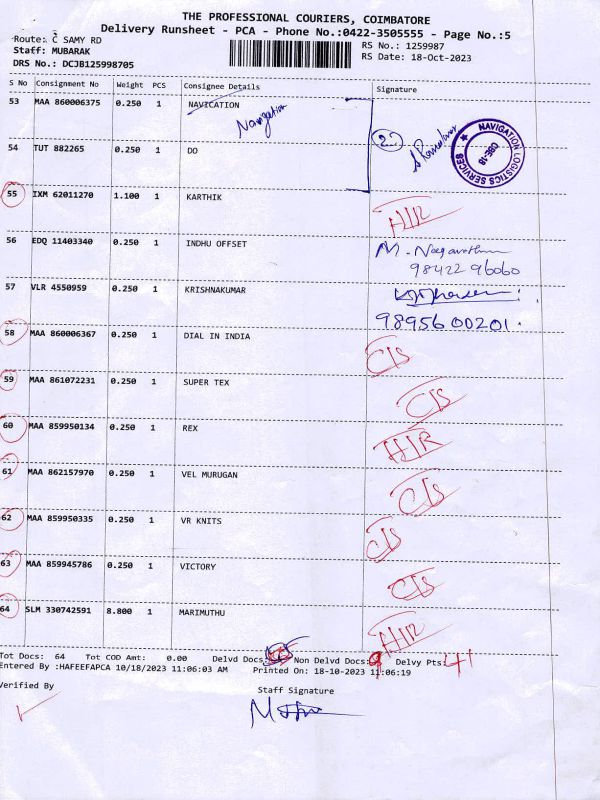 THE PROFESSIONAL COURIERS, COIMBATORE
Delivery Runsheet - PCA - Phone No.:0422-3505555 - Page No.:5
Route: C SAMY RD
RS No.: 1259987
Staff: MUBARAK
RS Date: 18-Oct-2023
DRS No.: DCJB125998705
S No Consignment No Weight PCS Consignee Details Signature
53 MAA 860006375 0.250 1 NAVICATION
Navigation
NAVIGATION LOGISTICS SERVICES
CBE-18
54 TUT 882265 0.250 1 DO
55 IXM 62011270 1.100 1 KARTHIK
H/R
56 EDQ 11403340 0.250 1 INDHU OFFSET
98422 96060
57 VLR 4550959 0.250 1 KRISHNAKUMAR
9895600201
58 MAA 860006367 0.250 1 DIAL IN INDIA
C/S
59 MAA 861072231 0.250 1 SUPER TEX
C/S
60 MAA 859950134 0.250 1 REX
H/R
61 MAA 862157970 0.250 1 VEL MURUGAN
C/S
62 MAA 859950335 0.250 1 VR KNITS
C/S
63 MAA 859945786 0.250 1 VICTORY
C/S
64 SLM 330742591 8.800 1 MARIMUTHU
H/R
Tot Docs: 64 Tot COD Amt: 0.00 Delvd Docs: Non Delvd Docs: Delvy Pts:
Entered By :HAFEEFAPCA 10/18/2023 11:06:03 AM Printed On: 18-10-2023 11:06:19
Verified By
Staff Signature